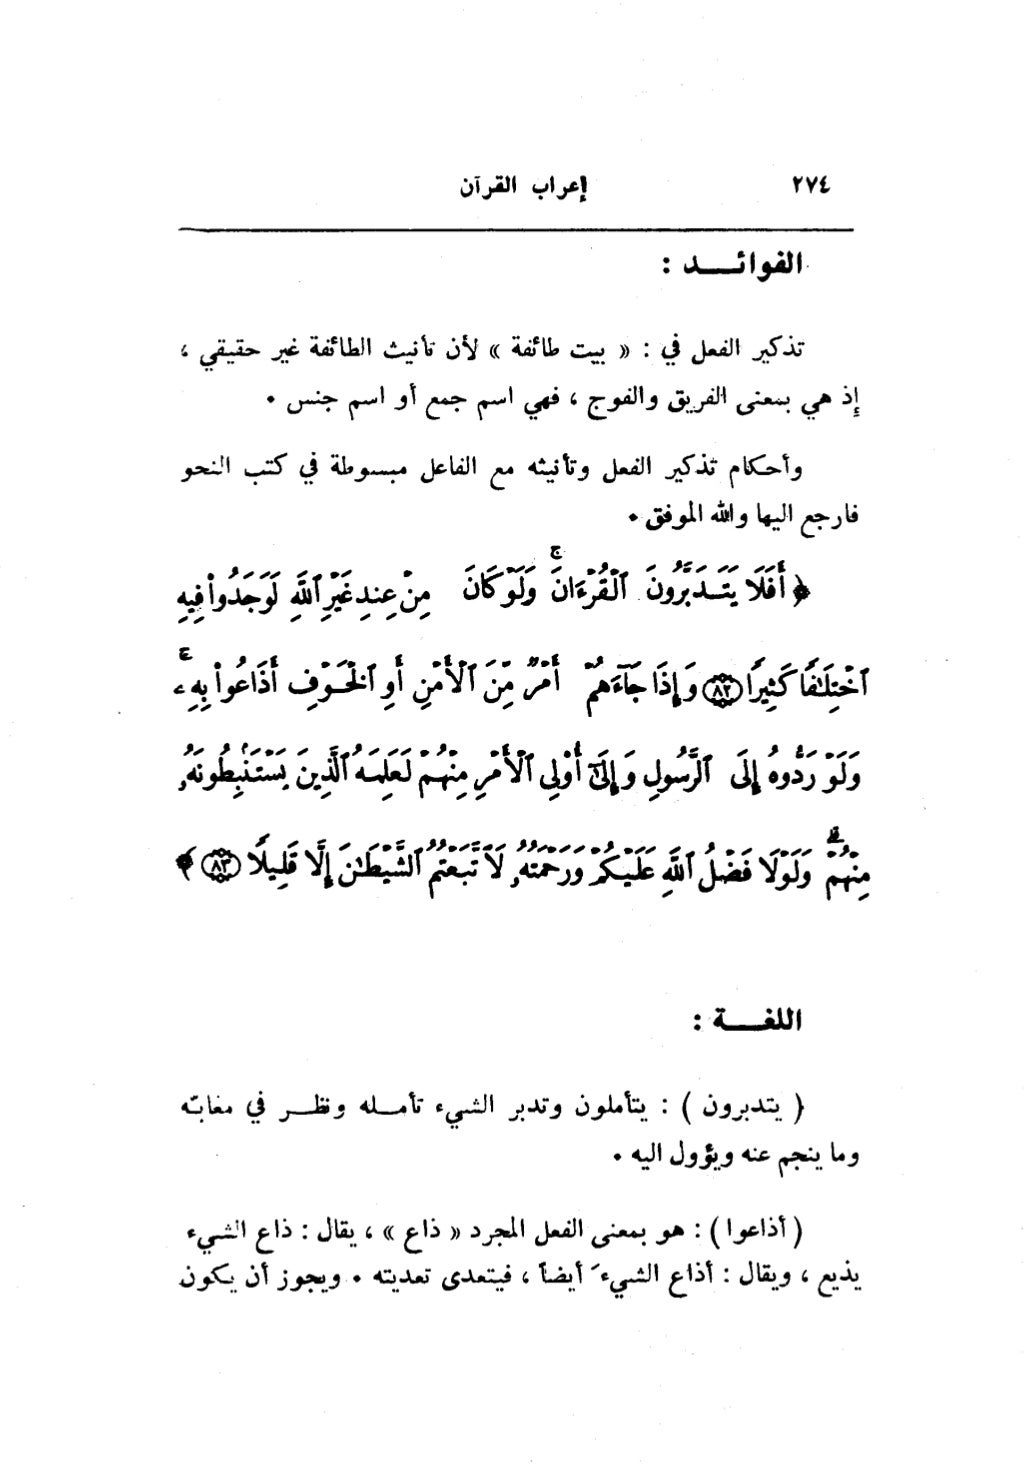 ٢٧٤ إعراب القرآن
الفوائـــد :
تذكير الفعل في : « بيت طائفة » لأن تأنيث الطائفة غير حقيقي ،
إذ هي بمعنى الفريق والفوج ، فهي اسم جمع أو اسم جنس .
وأحكام تذكير الفعل وتأنيثه مع الفاعل مبسوطة في كتب النحو
فارجع اليها والله الموفق .
﴿ أَفَلَا يَتَدَبَّرُونَ ٱلْقُرْءَانَۚ وَلَوْ كَانَ مِنْ عِندِ غَيْرِ ٱللَّهِ لَوَجَدُوا۟ فِيهِ
ٱخْتِلَٰفًا كَثِيرًا ٨٢ وَإِذَا جَآءَهُمْ أَمْرٌ مِّنَ ٱلْأَمْنِ أَوِ ٱلْخَوْفِ أَذَاعُوا۟ بِهِۦۚ
وَلَوْ رَدُّوهُ إِلَى ٱلرَّسُولِ وَإِلَىٰٓ أُو۟لِى ٱلْأَمْرِ مِنْهُمْ لَعَلِمَهُ ٱلَّذِينَ يَسْتَنۢبِطُونَهُۥ
مِنْهُمْۗ وَلَوْلَا فَضْلُ ٱللَّهِ عَلَيْكُمْ وَرَحْمَتُهُۥ لَٱتَّبَعْتُمُ ٱلشَّيْطَٰنَ إِلَّا قَلِيلًا ٨٣ ﴾
اللغـــة :
( يتدبرون ) : يتأملون وتدبر الشيء تأمـله ونظـر في مغابّه
وما ينجم عنه ويؤول اليه .
( أذاعوا ) : هو بمعنى الفعل المجرد « ذاع » ، يقال : ذاع الشيء
يذيع ، ويقال : أذاع الشيءَ أيضاً ، فيتعدى تعديته . ويجوز أن يكون